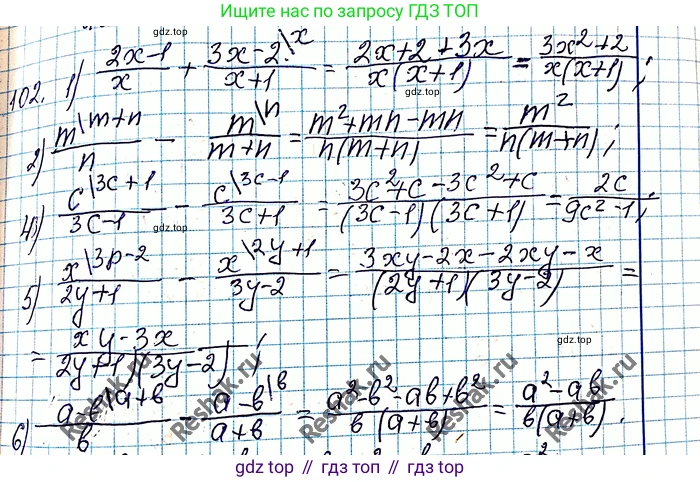 Ищите нас по запросу ГДЗ ТОП
gdz.top
102. 1) \frac{2x-1}{x} + \frac{3x-2 \backslash x}{x+1} = \frac{2x+2+3x}{x(x+1)} = \frac{3x^2+2}{x(x+1)};
2) \frac{m \backslash m+n}{n} - \frac{m \backslash n}{m+n} = \frac{m^2+mn-mn}{n(m+n)} = \frac{m^2}{n(m+n)};
gdz.top
4) \frac{c \backslash 3c+1}{3c-1} - \frac{c \backslash 3c-1}{3c+1} = \frac{3c^2+c-3c^2+c}{(3c-1)(3c+1)} = \frac{2c}{9c^2-1};
gdz.top
5) \frac{x \backslash 3p-2}{2y+1} - \frac{x \backslash 2y+1}{3y-2} = \frac{3xy-2x-2xy-x}{(2y+1)(3y-2)} =
gdz.top
= \frac{xy-3x}{2y+1)(3y-2)};
Reshak.ru Reshak.ru Reshak.ru Reshak.ru
6) \frac{a-b \backslash a+b}{b} - \frac{a-b \backslash b}{a+b} = \frac{a^2-b^2-ab+b^2}{b(a+b)} = \frac{a^2-ab}{b(a+b)}.
gdz top // гдз топ // gdz.top